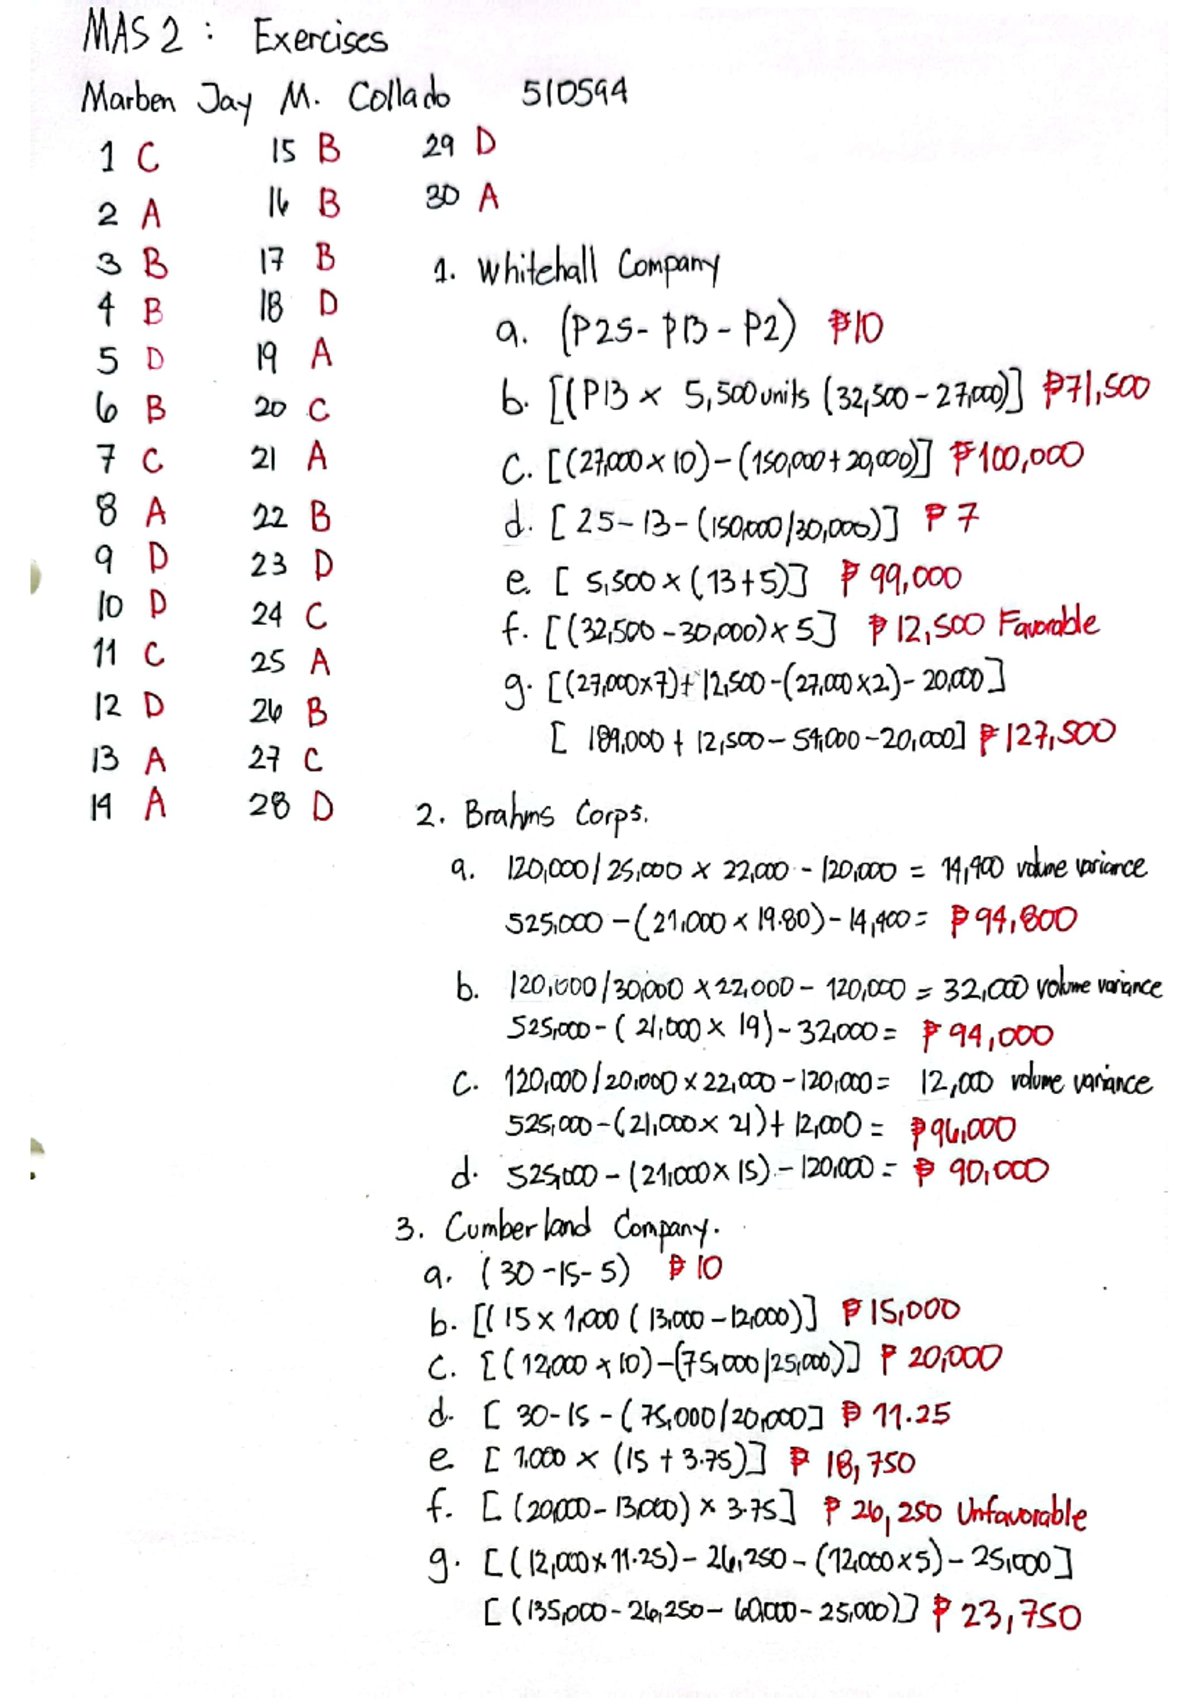 MAS 2 : Exercises
Marben Jay M. Collado 510594
1 C
2 A
3 B
4 B
5 D
6 B
7 C
8 A
9 D
10 D
11 C
12 D
13 A
14 A
15 B
16 B
17 B
18 D
19 A
20 C
21 A
22 B
23 D
24 C
25 A
26 B
27 C
28 D
29 D
30 A
1. Whitehall Company
a. (P25 - P13 - P2) ₱10
b. [(P13 x 5,500 units (32,500 - 27,000)] ₱71,500
C. [(27,000 x 10) - (150,000 + 20,000)] ₱100,000
d. [ 25 - 13 - (150,000/30,000)] ₱ 7
e. [ 5,500 x (13+5)] ₱ 99,000
f. [(32,500 - 30,000) x 5] ₱ 12,500 Favorable
g. [(27,000x7) + 12,500 - (27,000 x2) - 20,000]
[ 189,000 + 12,500 - 54,000 - 20,000] ₱ 127,500
2. Brahms Corps.
a. 120,000/25,000 x 22,000 - 120,000 = 14,400 volume variance
525,000 - (21,000 x 19.80) - 14,400 = ₱ 94,800
b. 120,000/30,000 x 22,000 - 120,000 = 32,000 volume variance
525,000 - ( 21,000 x 19) - 32,000 = ₱ 94,000
C. 120,000/20,000 x 22,000 - 120,000 = 12,000 volume variance
525,000 - (21,000 x 21) + 12,000 = ₱96,000
d. 525,000 - (21,000 x 15) - 120,000 = ₱ 90,000
3. Cumberland Company.
a. (30 - 15 - 5) ₱ 10
b. [( 15 x 1,000 ( 13,000 - 12,000)] ₱ 15,000
C. [( 12,000 x 10) - (75,000/25,000)] ₱ 20,000
d. [ 30 - 15 - ( 75,000/20,000] ₱ 11.25
e [ 1,000 x (15 + 3.75)] ₱ 18,750
f. [ (20,000 - 13,000) x 3.75] ₱ 26,250 Unfavorable
g. [( 12,000 x 11.25) - 26,250 - (12,000 x5) - 25,000]
[ (135,000 - 26,250 - 60,000 - 25,000)] ₱ 23,750